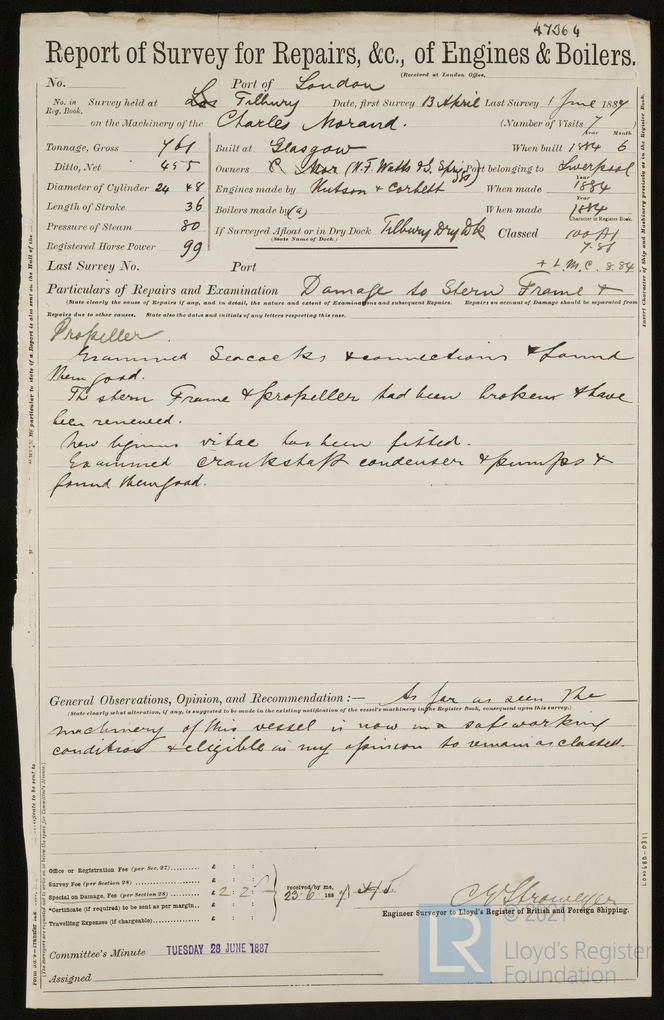 47364
Report of Survey for Repairs, &c., of Engines & Boilers.
(Received at London Office,
No. Port of London
No. in Reg. Book. Survey held at Tilbury Date, first Survey 13 April Last Survey 1 June 1887
on the Machinery of the Charles Morand. (Number of Visits 7)
Year Month
Tonnage, Gross 761 Built at Glasgow When built 1884 6
Ditto, Net 455 Owners (H.F. Watts & Port belonging to Liverpool
Year
Diameter of Cylinder 24 48 Engines made by Hutson & Corbett When made 1884
Year
Length of Stroke 36 Boilers made by (a) When made 1884
Character in Register Book.
Pressure of Steam 80 If Surveyed Afloat or in Dry Dock Tilbury Dry Dk Classed 100 A1
(State Name of Dock.)
Registered Horse Power 99 7.86
Last Survey No. Port + L.M.C. 8.84
Particulars of Repairs and Examination Damage to Stern Frame +
(State clearly the cause of Repairs if any, and in detail, the nature and extent of Examinations and subsequent Repairs. Repairs on account of Damage should be separated from
Repairs due to other causes. State also the dates and initials of any letters respecting this case.
Propeller.
Examined Seacocks & connections & found
them good.
The stern Frame & propeller had been broken & have
been renewed.
New lignum vitae has been fitted.
Examined crankshaft condenser & pumps &
found them good.
General Observations, Opinion, and Recommendation :— As far as seen the
(State clearly what alteration, if any, is suggested to be made in the existing notification of the vessel's machinery in the Register Book, consequent upon this survey.)
machinery of this vessel is now in a safe working
condition & eligible in my opinion to remain as classed.
Office or Registration Fee (per Sec. 27) £ : :
Survey Fee (per Section 28) £ : :
Special on Damage, Fee (per Section 28) £ 2 : 2 : received by me, 23.6.1887
*Certificate (if required) to be sent as per margin £ : :
Travelling Expenses (if chargeable) £ : :
Engineer Surveyor to Lloyd's Register of British and Foreign Shipping.
Committee's Minute TUESDAY 28 JUNE 1887
Assigned
Insert Character of Ship and Machinery precisely as in the Register Book.
LR
© 2021
Lloyd's Register
Foundation